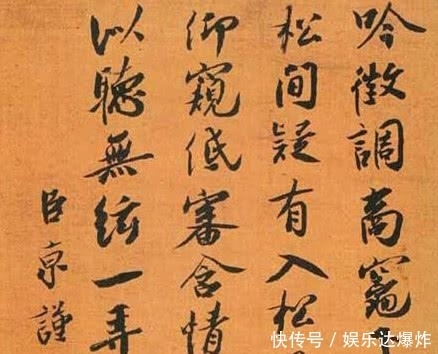 吟徵調商竈下
松間疑有入松
仰窺低審含情
以聽無絃一弄
臣京謹
快传号/娱乐达爆炸